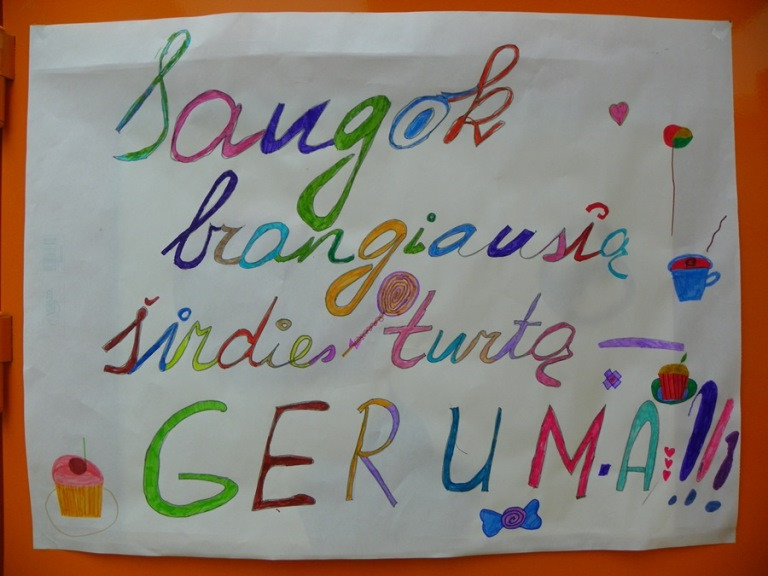 Saugok
brangiausią
širdies turtą —
GERUMA!!!